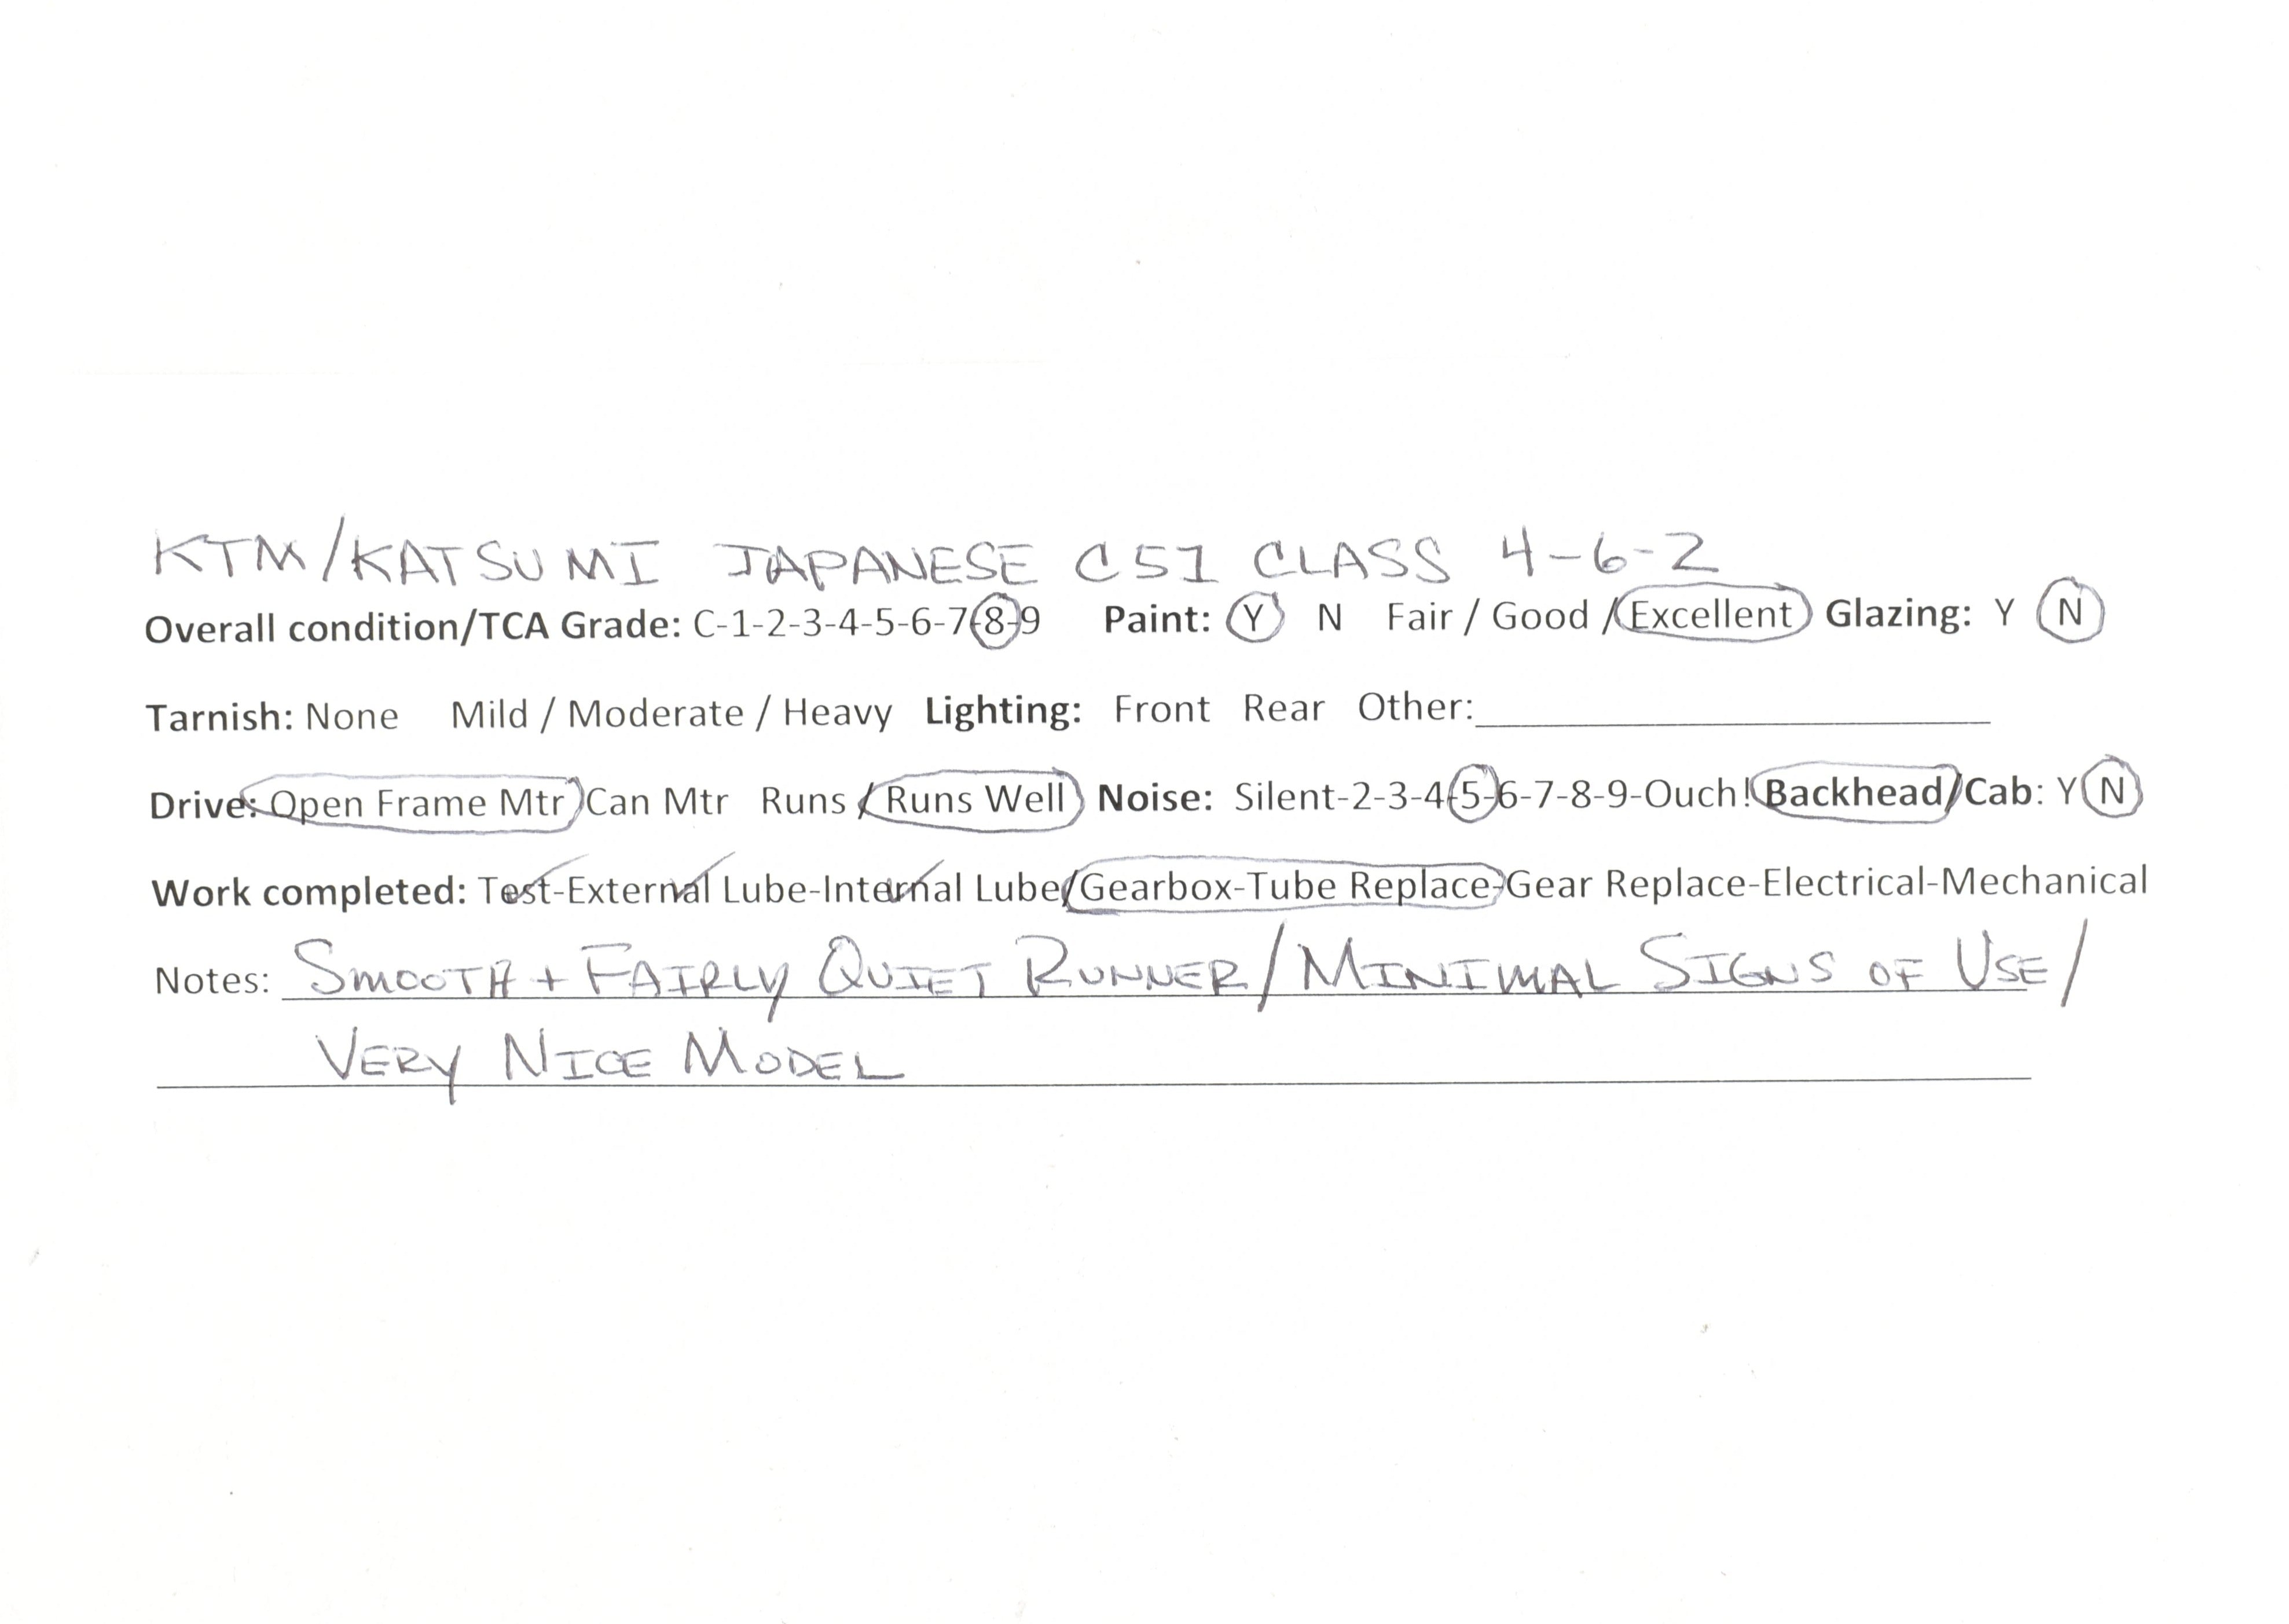 KTM/KATSUMI JAPANESE C51 CLASS 4-6-2
Overall condition/TCA Grade: C-1-2-3-4-5-6-7-8-9 Paint: Y N Fair / Good / Excellent Glazing: Y N
Tarnish: None Mild / Moderate / Heavy Lighting: Front Rear Other:
Drive: Open Frame Mtr Can Mtr Runs / Runs Well Noise: Silent-2-3-4-5-6-7-8-9-Ouch! Backhead/Cab: Y N
Work completed: Test-External Lube-Internal Lube/Gearbox-Tube Replace-Gear Replace-Electrical-Mechanical
Notes: SMOOTH + FAIRLY QUIET RUNNER/MINIMAL SIGNS OF USE/
VERY NICE MODEL